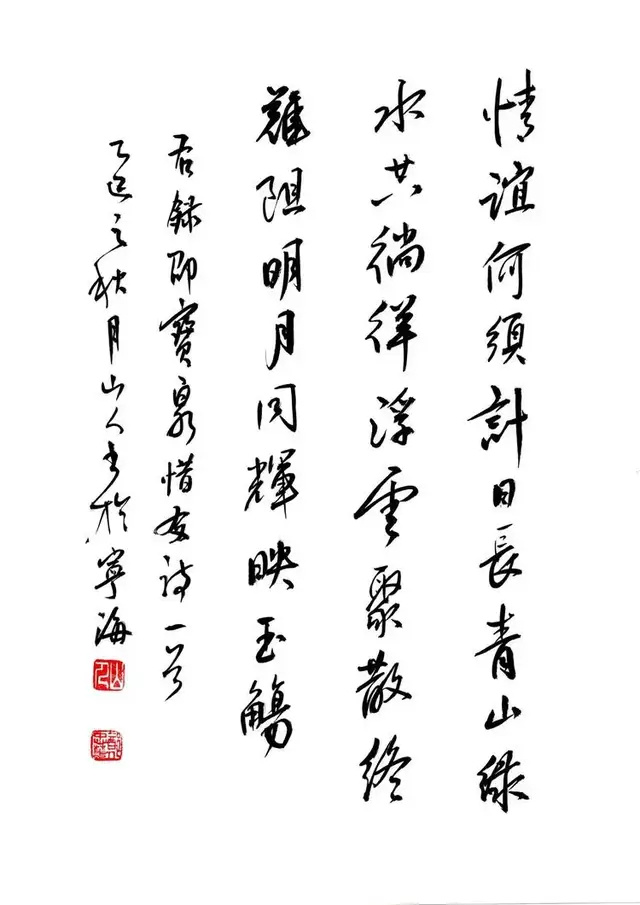 情誼何須計日長青山綠
水共徜徉浮雲聚散終
難阻明月同輝映玉觴
右錄邵寶泉惜友詩一首
乙巳之秋月山人书於寧海
山人